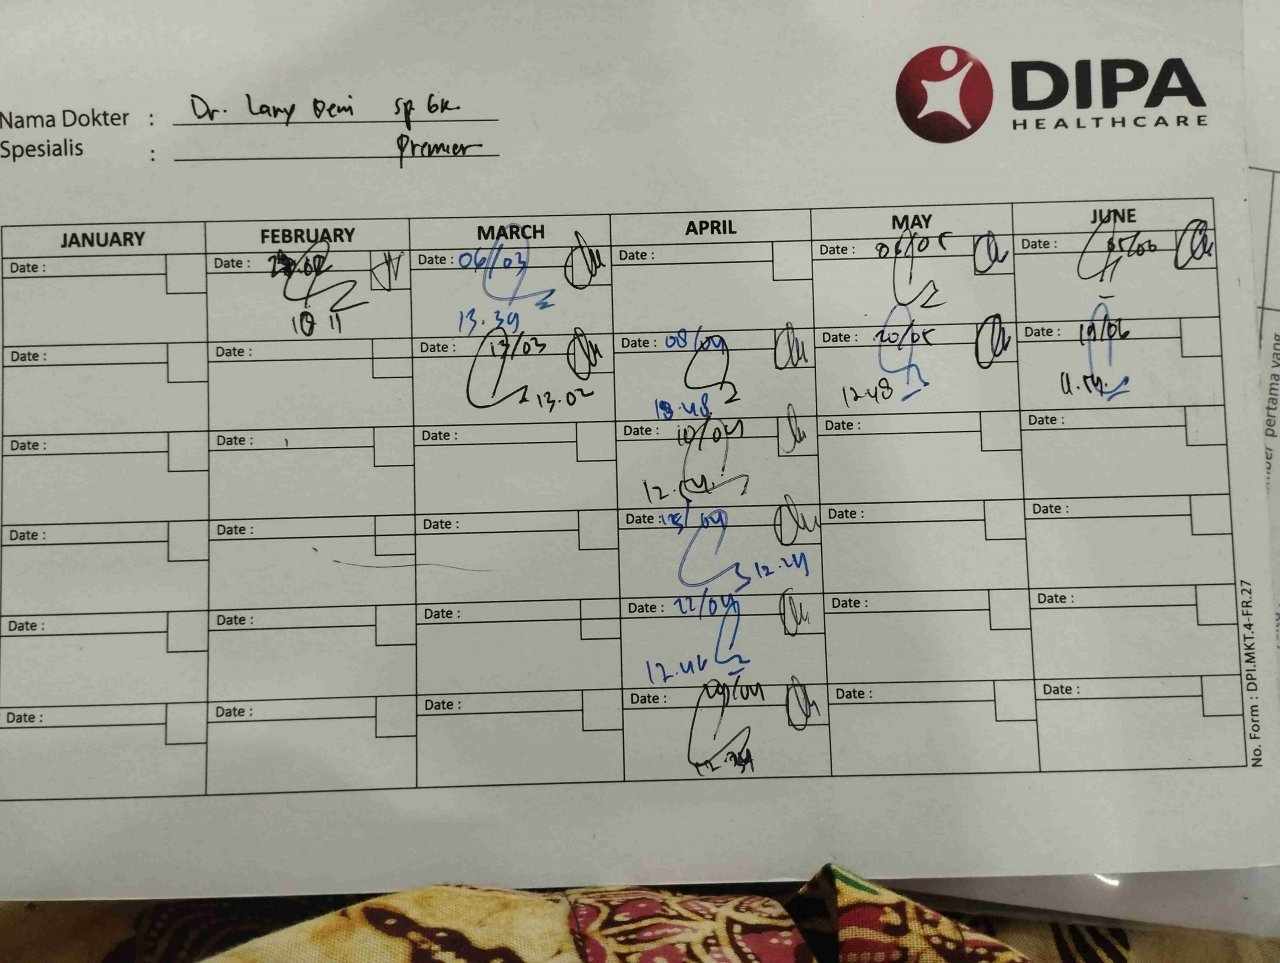 DIPA
HEALTHCARE
Nama Dokter : Dr. Lany Deni Sp GK
Spesialis : Premier
JANUARY FEBRUARY MARCH APRIL MAY JUNE
Date : Date : Date : 06/03 Date : Date : 06/05 Date : 05/06
13.39
Date : Date : Date : 13/03 Date : 08/04 Date : 20/05 Date : 19/06
13.02 12.48
Date : Date : Date : Date : 10/04 Date : Date :
Date : Date : Date : Date : Date : Date :
12.24
Date : Date : Date : Date : 22/04 Date : Date :
12.46
Date : Date : Date : Date : 29/04 Date : Date :
No. Form : DPI.MKT.4-FR.27
pertama yang